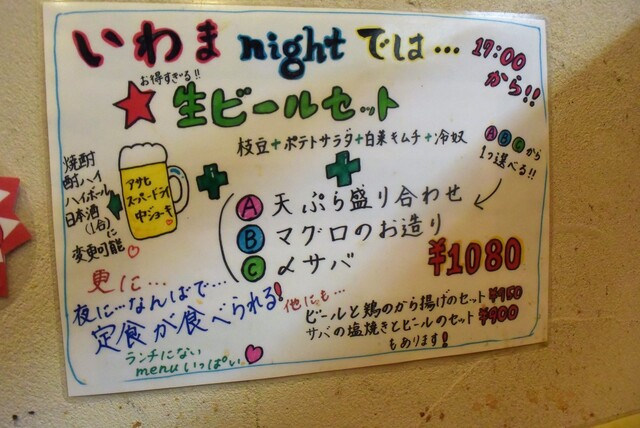 いわま nightでは…
17:00
から!!
お得すぎる!!
★生ビールセット
枝豆+ポテトサラダ+白菜キムチ+冷奴
ABCから
1つ選べる!!
焼酎
酎ハイ
ハイボール
日本酒
(1合)に
変更可能
アサヒ
スーパードライ
中ジョーキ
+
+
A 天ぷら盛り合わせ
B マグロのお造り
C 〆サバ
¥1080
更に…
夜に…なんばで…
定食が食べられる!
ランチにない
menuいっぱい
他にも…
ビールと鶏のから揚げのセット ¥950
サバの塩焼きとビールのセット ¥900
もあります!